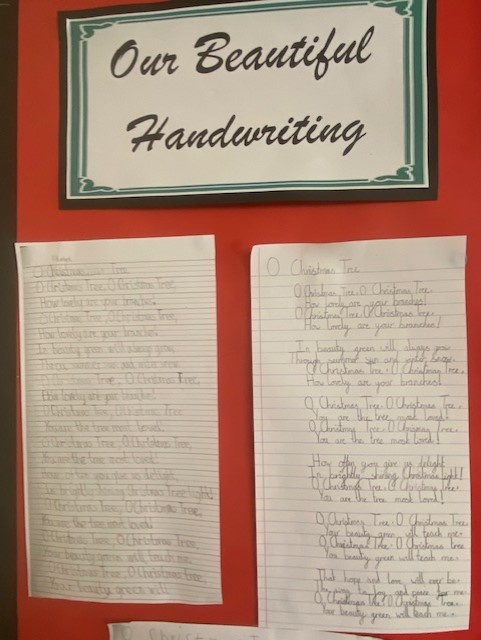 Our Beautiful
Handwriting
O Christmas Tree
O Christmas Tree, O Christmas Tree,
How lovely are your branches!
O Christmas Tree, O Christmas Tree,
How lovely are your branches!
In beauty green will always grow
O Christmas Tree, O Christmas Tree,
How lovely are your branches!
O Christmas Tree, O Christmas Tree,
You are the tree most loved!
O Christmas Tree, O Christmas Tree,
You are the tree most loved!
How often you give us delight
In brightly shining Christmas tree light!
O Christmas Tree, O Christmas Tree,
You are the tree most loved!
O Christmas Tree, O Christmas Tree,
Your beauty green will teach me
O Christmas tree, O Christmas tree,
Your beauty green will
O Christmas Tree
O Christmas Tree, O Christmas Tree,
How lovely are your branches!
O Christmas Tree, O Christmas tree,
How lovely are your branches!
In beauty green will always grow
Through summer sun and winter snow.
O Christmas Tree, O Christmas Tree,
How lovely are your branches!
O Christmas Tree, O Christmas Tree,
You are the tree most loved!
O Christmas Tree, O Christmas Tree,
You are the tree most loved!
How often you give us delight
In brightly shining Christmas light!
O Christmas Tree, O Christmas Tree,
You are the tree most loved!
O Christmas Tree, O Christmas Tree,
Your beauty green will teach me
O Christmas Tree, O Christmas Tree
You beauty green will teach me.
That hope and love will ever be
The way to joy and peace for me.
O Christmas Tree, O Christmas Tree,
Your beauty green will teach me.